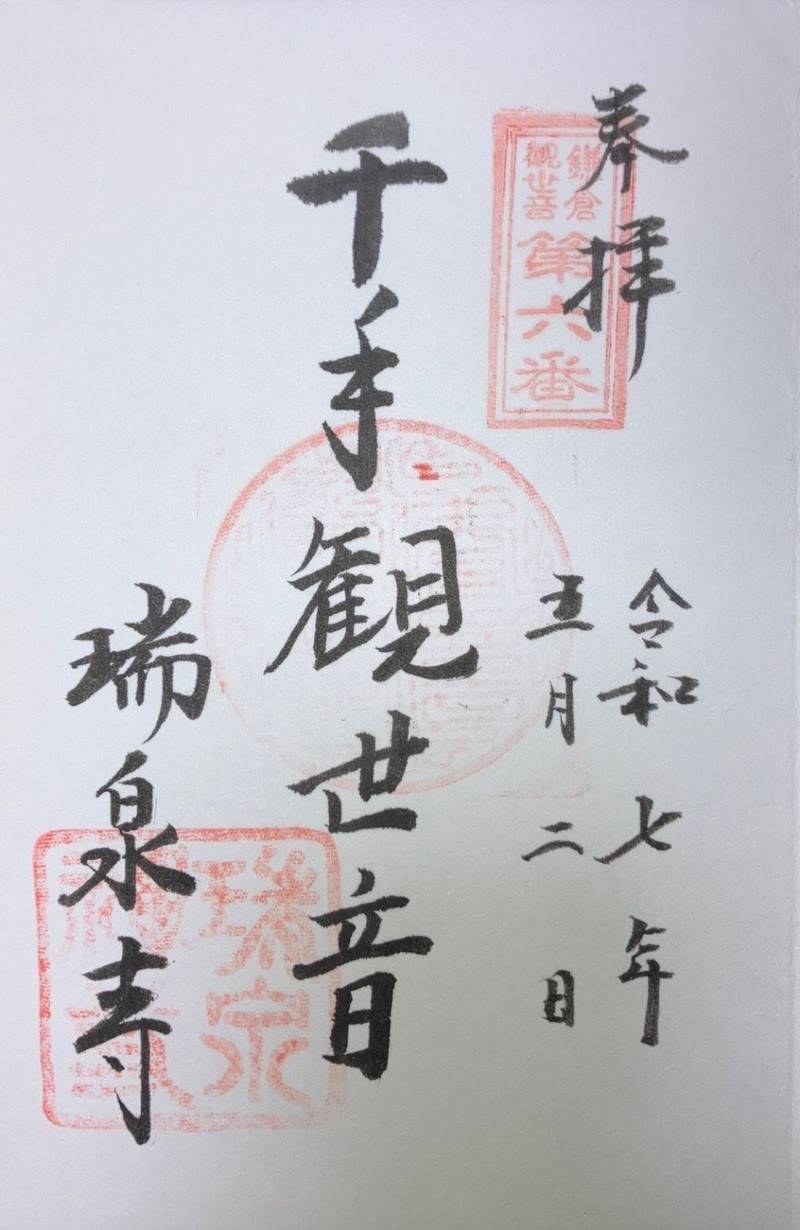 奉拝
鎌倉
観世音
第六番
令和七年
五月二日
千手観世音
瑞泉寺
瑞泉